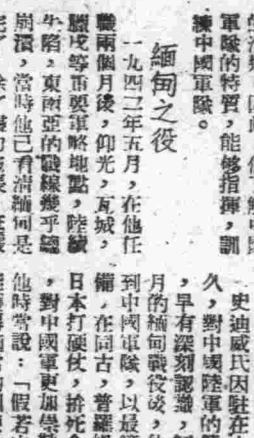 軍隊的特質,能够指揮,訓
練中國軍隊。
緬甸之役
一九四二年五月,在他任
職兩個月後,仰光,瓦城,
臘戍等重要軍略地點,陸續
失陷,東南亞的戰線幾乎總
崩潰,當時他已看清緬甸是
史迪威氏因駐在
久,對中國陸軍的
,早有深刻認識,
月的緬甸戰役後,
到中國軍隊,以最
備,在同古,普羅
日本打硬仗,拚死
,對中國軍更加
他時常說:「假若